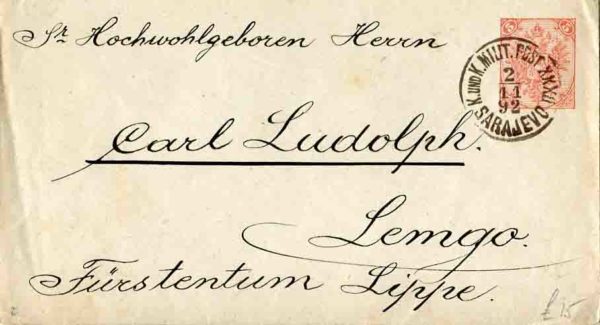 Sr. Hochwohlgeboren Herrn
Carl Ludolph.
Lemgo.
Fürstentum Lippe.
K. UND K. MILIT. POST XXXII
2
11
92
SARAJEVO
5
£ 15